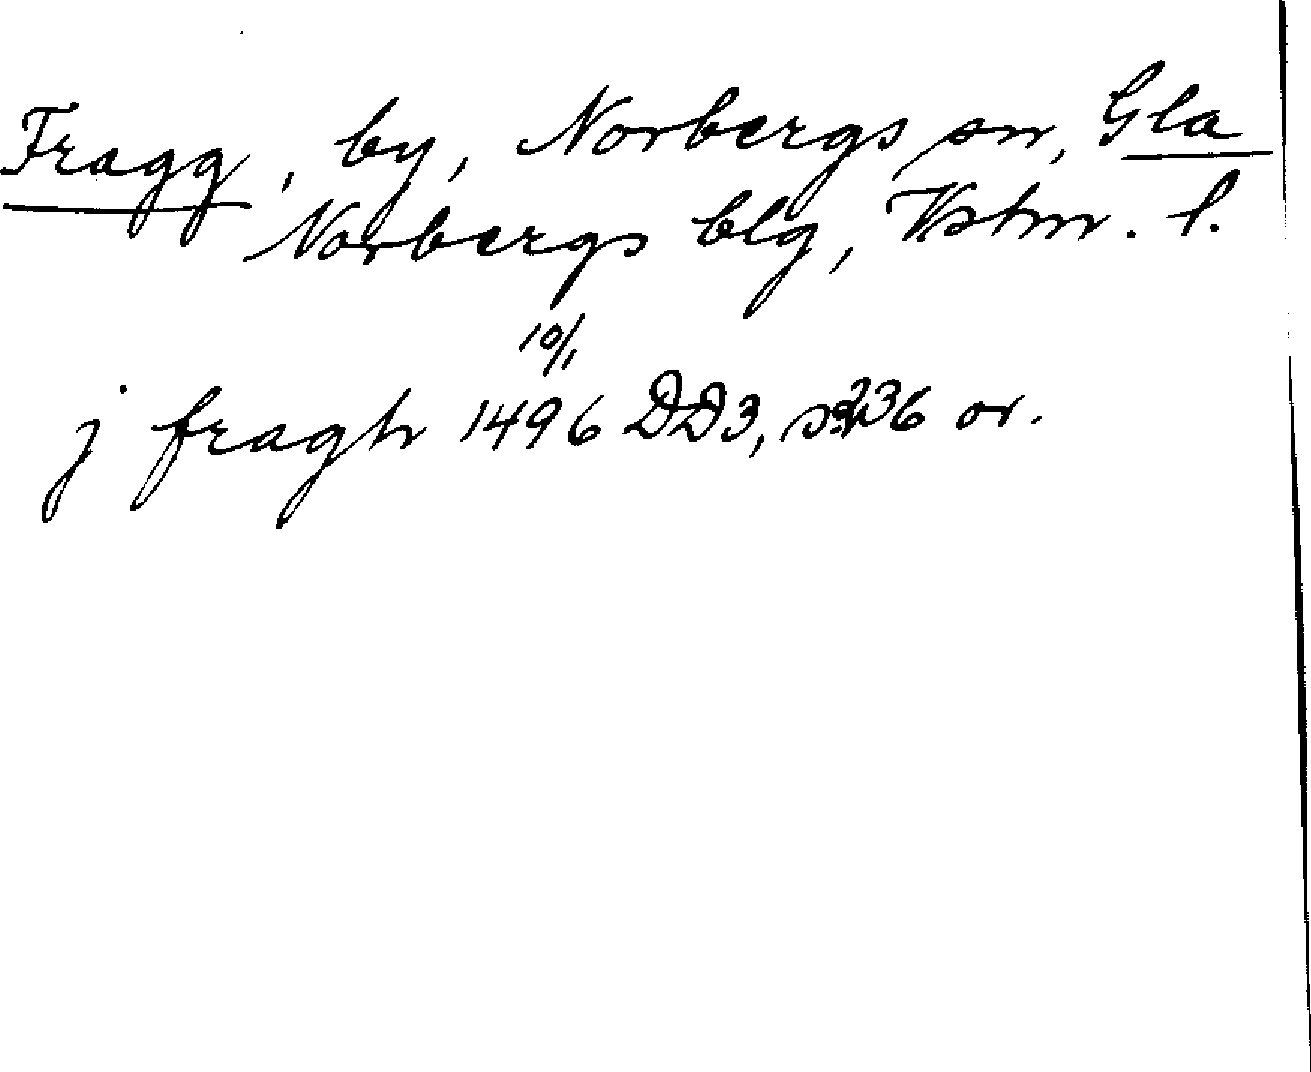 Fragg, by, Norbergs sn, Gla
Norbergs blg, Vstm. l.
10/1
j fragh 1496 DD3, s 236 or.